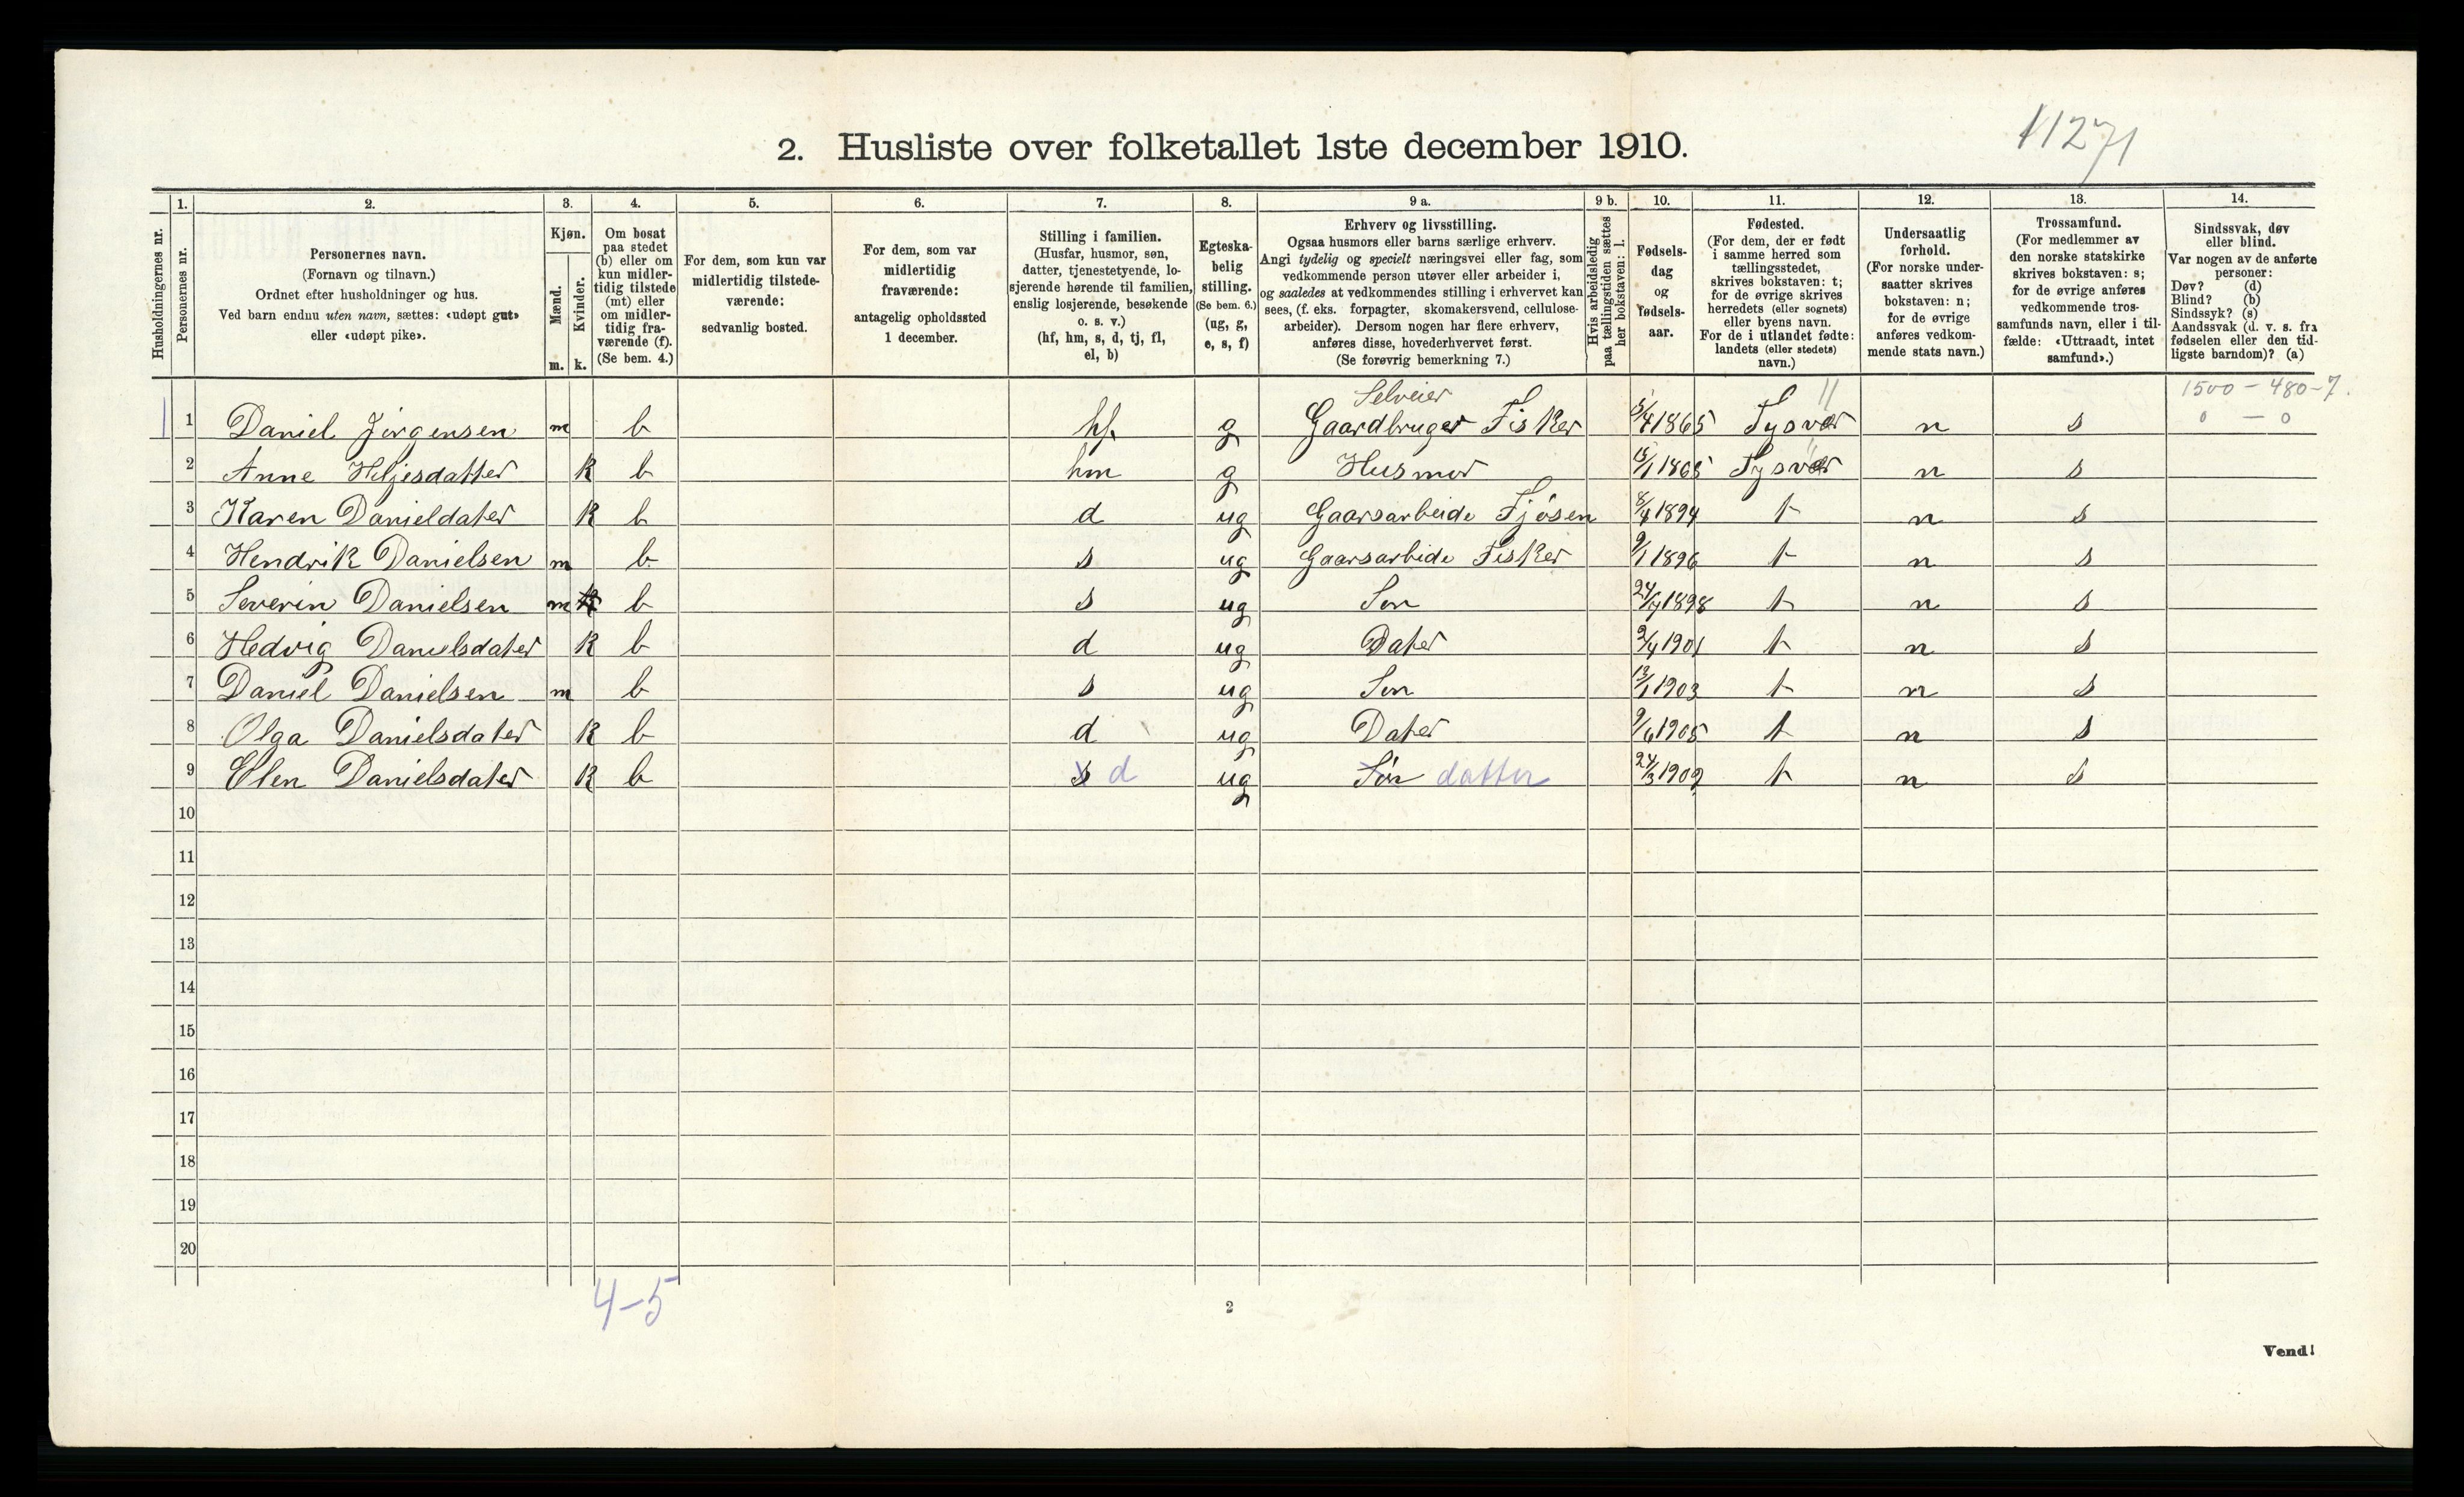 11271
2. Husliste over folketallet 1ste december 1910.
Husholdningernes nr.
1. Personernes nr.
2. Personernes navn.
(Fornavn og tilnavn.)
Ordnet efter husholdninger og hus.
Ved barn endnu uten navn, sættes: «udøpt gut»
eller «udøpt pike».
3. Kjøn.
Mænd. m.
Kvinder. k.
4. Om bosat
paa stedet
(b) eller om
kun midler-
tidig tilstede
(mt) eller
om midler-
tidig fra-
værende (f).
(Se bem. 4.)
5. For dem, som kun var
midlertidig tilstede-
værende:
sedvanlig bosted.
6. For dem, som var
midlertidig
fraværende:
antagelig opholdssted
1 december.
7. Stilling i familien.
(Husfar, husmor, søn,
datter, tjenestetyende, lo-
sjerende hørende til familien,
enslig losjerende, besøkende
o. s. v.)
(hf, hm, s, d, tj, fl,
el, b)
8. Egteska-
belig
stilling.
(Se bem. 6.)
(ug, g,
e, s, f)
9 a. Erhverv og livsstilling.
Ogsaa husmors eller barns særlige erhverv.
Angi tydelig og specielt næringsvei eller fag, som
vedkommende person utøver eller arbeider i,
og saaledes at vedkommendes stilling i erhvervet kan
sees, (f. eks. forpagter, skomakersvend, cellulose-
arbeider). Dersom nogen har flere erhverv,
anføres disse, hovederhvervet først.
(Se forøvrig bemerkning 7.)
9 b. Hvis arbeidsledig
paa tællingstiden sættes
her bokstaven: l.
10. Fødsels-
dag
og
fødsels-
aar.
11. Fødested.
(For dem, der er født
i samme herred som
tællingsstedet,
skrives bokstaven: t;
for de øvrige skrives
herredets (eller sognets)
eller byens navn.
For de i utlandet fødte:
landets (eller stedets)
navn.)
12. Undersaatlig
forhold.
(For norske under-
saatter skrives
bokstaven: n;
for de øvrige
anføres vedkom-
mende stats navn.)
13. Trossamfund.
(For medlemmer av
den norske statskirke
skrives bokstaven: s;
for de øvrige anføres
vedkommende tros-
samfunds navn, eller i til-
fælde: «Uttraadt, intet
samfund».)
14. Sindssvak, døv
eller blind.
Var nogen av de anførte
personer:
Døv? (d)
Blind? (b)
Sindssyk? (s)
Aandssvak (d. v. s. fra
fødselen eller den tid-
ligste barndom)? (a)
Selveier 1500 - 480-7.
1 Daniel Jørgensen m b hf. g Gaardbruger Fisker 1865 Tysvær n s 0 - 0
2 Anne Heljesdatter k b hm g Husmor 15/1 1865 Tysvær n s
3 Karen Danieldater k b d ug Gaarsarbeide Fjøsen 8/4 1894 t n s
4 Hendrik Danielsen m b s ug Gaarsarbeide Fisker 9/1 1896 t n s
5 Severin Danielsen m b s ug Søn 24/7 1898 t n s
6 Hedvig Danielsdater k b d ug Dater 2/4 1901 t n s
7 Daniel Danielsen m b s ug Søn 13/1 1903 t n s
8 Olga Danielsdater k b d ug Dater 9/6 1905 t n s
9 Elen Danielsdater k b s d ug Søn datter 24/3 1909 t n s
10
11
12
13
14
15
16
17
18
19
20
4-5
2
Vend!